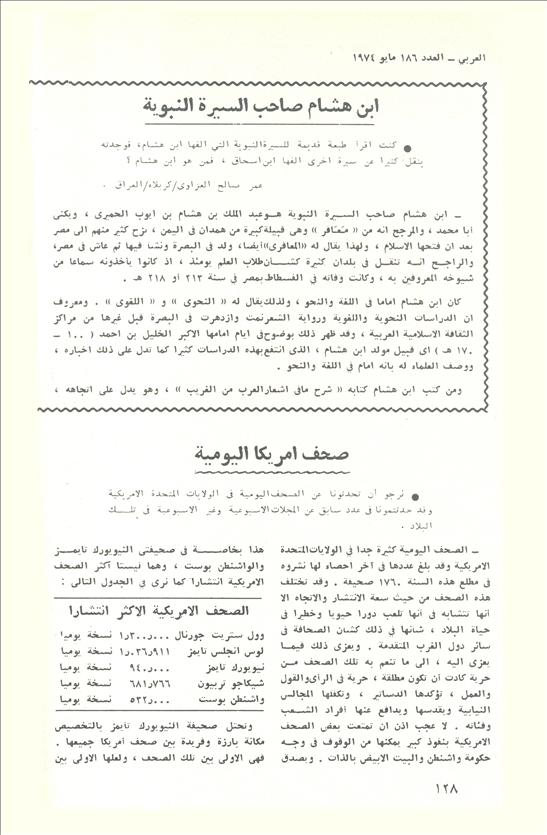 العربي ــ العدد ١٨٦ مايو ١٩٧٤
ابن هشام صاحب السيرة النبوية
● كنت اقرأ طبعة قديمة للسيرة النبوية التي الفها ابن هشام، فوجدته
ينقل كثيرا عن سيرة اخرى الفها ابن اسحاق ، فمن هو ابن هشام ؟
عمر صالح العزاوى/كربلاء/العراق .
ــ ابن هشام صاحب السيرة النبوية هو عبد الملك بن هشام بن ايوب الحميرى ، ويكنى
أبا محمد ، والمرجح انه من « معافر » وهى قبيلة كبيرة من همدان فى اليمن ، نزح كثير منهم الى مصر
بعد ان فتحها الاسلام ، ولهذا يقال له «المعافرى» أيضا، ولد فى البصرة ونشأ فيها ثم عاش فى مصر،
والراجح انه تنقل فى بلدان كثيرة كشأن طلاب العلم يومئذ ، اذ كانوا يأخذونه سماعا من
شيوخه المعروفين به ، وكانت وفاته فى الفسطاط بمصر فى سنة ٢١٣ أو ٢١٨ هـ .
كان ابن هشام اماما فى اللغة والنحو ، ولذلك يقال له « النحوى » و « اللغوى » . ومعروف
ان الدراسات النحوية واللغوية ورواية الشعر نمت وازدهرت فى البصرة قبل غيرها من مراكز
الثقافة الاسلامية العربية ، وقد ظهر ذلك بوضوح فى ايام امامها الاكبر الخليل بن احمد ( ١٠٠ ــ
١٧٠ هـ ) اى قبيل مولد ابن هشام ، الذى انتفع بهذه الدراسات كثيرا كما تدل على ذلك اخباره ،
ووصف العلماء له بانه امام فى اللغة والنحو .
ومن كتب ابن هشام كتابه « شرح مافى اشعار العرب من الغريب » ، وهو يدل على اتجاهه ،
صحف امريكا اليومية
● نرجو أن تحدثونا عن الصحف اليومية فى الولايات المتحدة الامريكية
وقد حدثتمونا فى عدد سابق عن المجلات الاسبوعية وغير الاسبوعية فى تلك
البلاد .
ــ الصحف اليومية كثيرة جدا فى الولايات المتحدة
الامريكية وقد بلغ عددها فى آخر احصاء لها نشروه
فى مطلع هذه السنة ١٧٦٠ صحيفة . وقد تختلف
هذه الصحف من حيث سعة الانتشار والاتجاه الا
أنها تتشابه فى أنها تلعب دورا حيويا وخطيرا فى
حياة البلاد ، شأنها فى ذلك كشأن الصحافة فى
سائر دول الغرب المتقدمة . ويعزى ذلك فيما
يعزى اليه ، الى ما تنعم به تلك الصحف من
حرية كادت أن تكون مطلقة ، حرية فى الرأى والقول
والعمل ، تؤكدها الدساتير ، وتكفلها المجالس
النيابية ويقدسها ويدافع عنها أفراد الشعب
وفئاته . لا عجب اذن ان تمتعت بعض الصحف
الامريكية بنفوذ كبير يمكنها من الوقوف فى وجه
حكومة واشنطن والبيت الابيض بالذات . ويصدق
هذا بخاصة فى صحيفتى النيويورك تايمز
والواشنطن بوست ، وهما ليستا أكثر الصحف
الامريكية انتشارا كما نرى فى الجدول التالى :
الصحف الامريكية الاكثر انتشارا
وول ستريت جورنال ١ر٣٠٠ر٠٠٠ نسخة يوميا
لوس انجلس تايمز ١ر٠٣٦ر٩١١ نسخة يوميا
نيويورك تايمز ٩٤٠ر٠٠٠ نسخة يوميا
شيكاجو تربيون ٦٨١ر٧٦٦ نسخة يوميا
واشنطن بوست ٥٣٢ر٠٠٠ نسخة يوميا
وتحتل صحيفة النيويورك تايمز بالتخصيص
مكانة بارزة وفريدة بين صحف أمريكا جميعها .
فهى الاولى بين تلك الصحف ، ولعلها الاولى بين
١٢٨